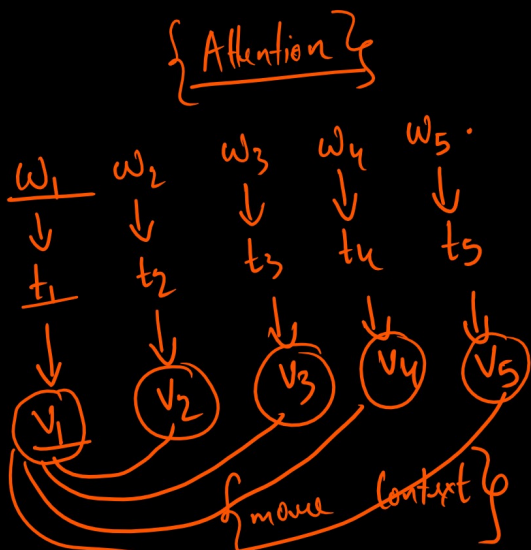 {Attention}
w1 w2 w3 w4 w5.
t1 t2 t3 t4 t5
v1 v2 v3 v4 v5
{more Context}